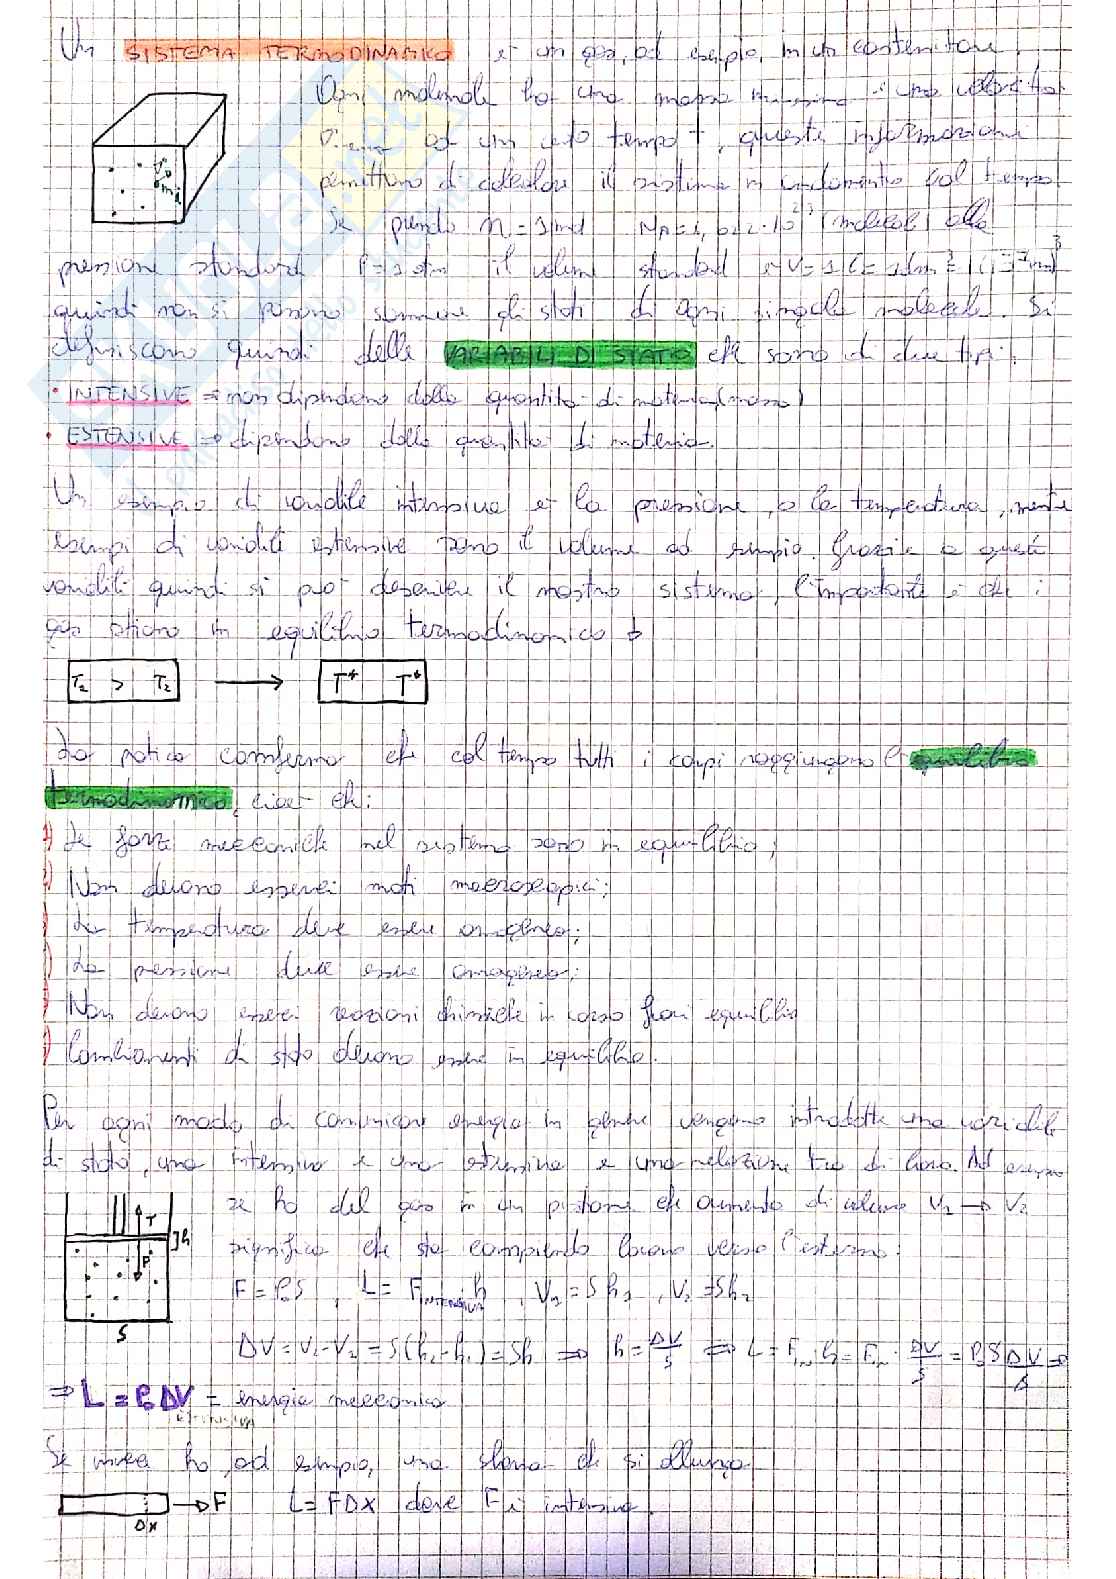 Un SISTEMA TERMODINAMICO è un gas, ad esempio, in un contenitore.
Ogni molecola ha una massa e una velocità
ad un certo tempo t, queste informazioni
permettono di calcolare il sistema in andamento col tempo
Se prendo n = 1 mol molecole alla
pressione standard P = 1 atm il volume standard
quindi non si possono gli stati di ogni singola molecola. Si
definiscono quindi delle VARIABILI DI STATO che sono di due tipi:
• INTENSIVE ⇒ non dipendono dalla quantità di materia (massa)
• ESTENSIVE ⇒ dipendono dalla quantità di materia.
Un esempio di variabile intensiva è la pressione, o la temperatura, mentre
esempi di variabili estensive sono il volume ad esempio. Grazie a queste
variabili quindi si può descrivere il nostro sistema, l'importante è che i
gas stiano in equilibrio termodinamico
T₂ > T₂ → T* T*
La pratica conferma che col tempo tutti i corpi raggiungono l'equilibrio
termodinamico, cioè che:
) Le forze meccaniche nel sistema sono in equilibrio;
) Non devono esserci moti macroscopici;
) La temperatura deve essere omogenea;
) La pressione deve essere omogenea;
) Non devono esserci reazioni chimiche in corso fuori equilibrio
) Cambiamenti di stato devono essere in equilibrio.
Per ogni modo di comunicare energia in genere vengono introdotte una variabile
di stato, una intensiva e una estensiva e una relazione tra di loro. Ad esempio
se ho del gas in un pistone che aumenta di volume V₁ → V₂
significa che sta compiendo lavoro verso l'esterno:
h
P
S
F = P·S , L = F h , V₁ = S h₁ , V₂ = S h₂
ΔV = V₂ - V₁ = S(h₂ - h₁) = Sh ⇒ h = ΔV/S ⇒ L = F · h = F · ΔV/S = P S ΔV/S ⇒
⇒ L = P·ΔV = energia meccanica
Se invece ho, ad esempio, una sbarra che si allunga
→ F L = FΔX dove F è intensiva.
ΔX